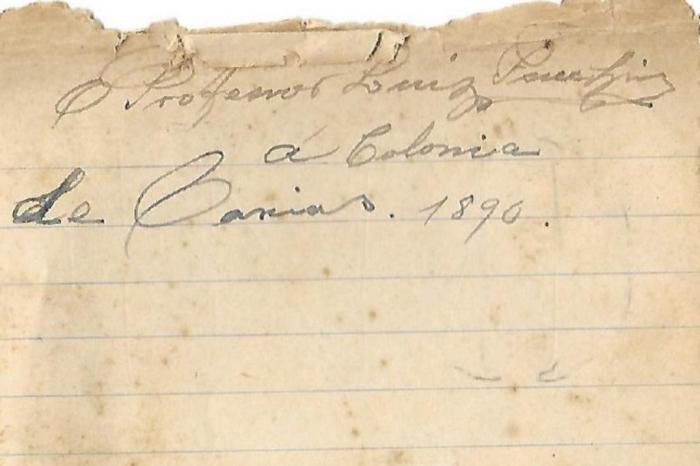 O Professor Luiz
á Colonia
de Caxias. 1890.